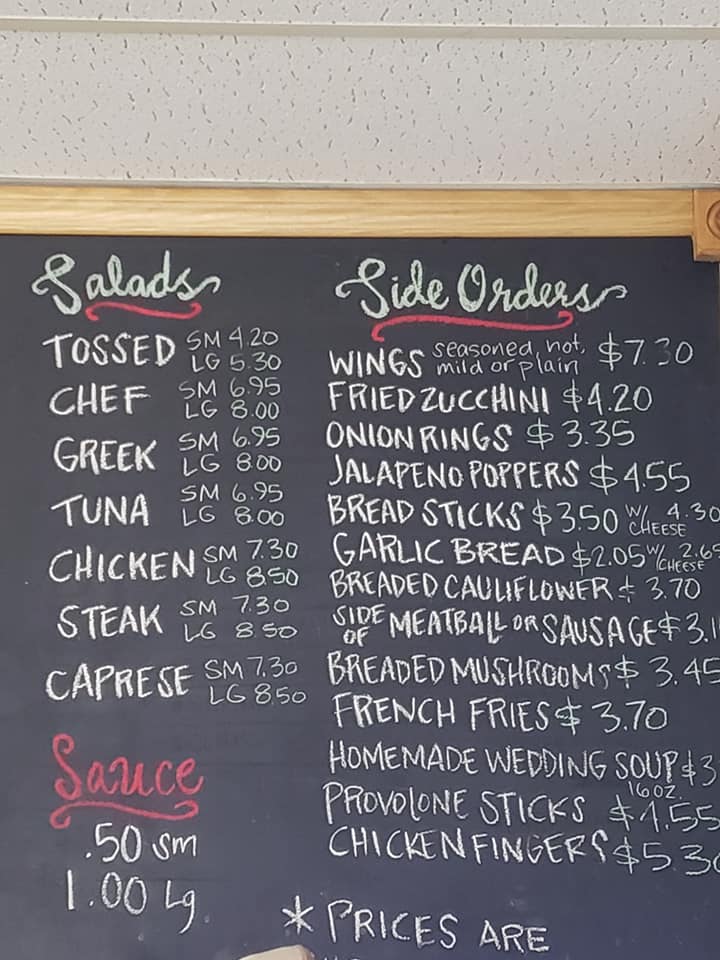 Salads
TOSSED SM 4.20
LG 5.30
CHEF SM 6.95
LG 8.00
GREEK SM 6.95
LG 8.00
TUNA SM 6.95
LG 8.00
CHICKEN SM 7.30
LG 8.50
STEAK SM 7.30
LG 8.50
CAPRESE SM 7.30
LG 8.50
Sauce
.50 sm
1.00 Lg
Side Orders
WINGS seasoned, hot, $7.30
mild or plain
FRIED ZUCCHINI $4.20
ONION RINGS $3.35
JALAPENO POPPERS $4.55
BREAD STICKS $3.50 W/ 4.30
CHEESE
GARLIC BREAD $2.05 W/ 2.65
CHEESE
BREADED CAULIFLOWER $ 3.70
SIDE OF MEATBALL OR SAUSAGE $3.1
BREADED MUSHROOMS $3.45
FRENCH FRIES $ 3.70
HOMEMADE WEDDING SOUP $3
16 OZ.
PROVOLONE STICKS $4.55
CHICKEN FINGERS $5.30
* PRICES ARE